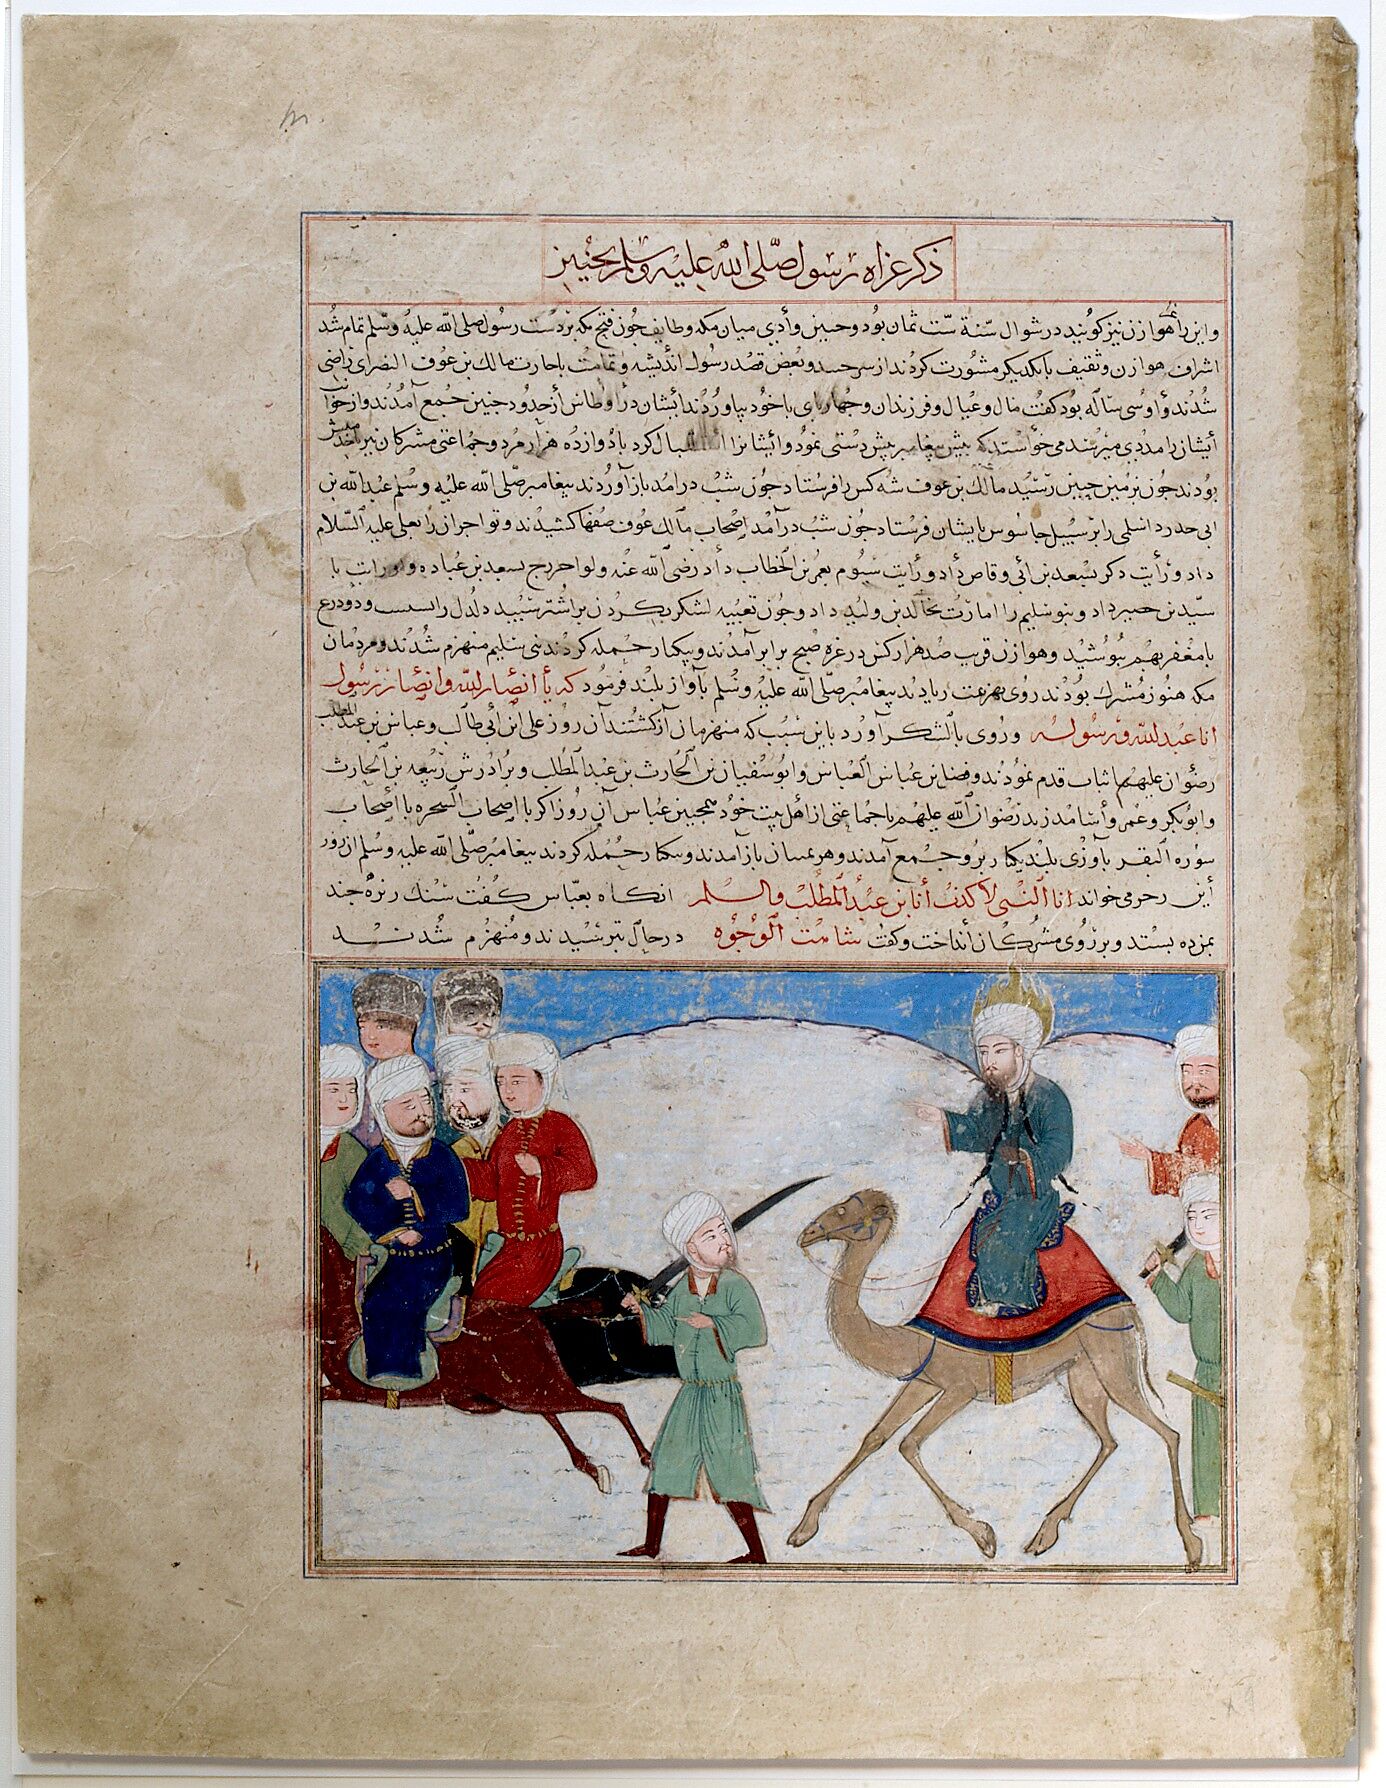 ذكر غزاه رسول صلّى الله عليه وسلم بحنين
واین را هوازن نیز کویند در شوال سنة ست ثمان بود و حنین وادیی میان مکه و طایف چون فتح مکه بر دست رسول صلى الله عليه وسلم تمام شد
اشراف هوازن و ثقیف با یکدیکر مشورت کردند از سر حسد و بغض قصد رسول اندیشه و تمامت بامارت مالك بن عوف النصرای راضی
شدند و او سی ساله بود کفت مال و عیال و فرزندان و چهارپای با خود بیاوردند ایشان در اوطاس از حدود حنین جمع آمدند و از خوا
ایشان را مدد می خواست که پیش پیغامبر پیش دستی نمود و ایشانرا استقبال کرد با دوازده هزار مرد و جماعتی مشرکان نیز
بودند چون بزمین حنین رسید مالك بن عوف سه کس را فرستاد چون شب درامد باز آوردند پیغامبر صلّى الله عليه وسلم عبد الله بن
ابی حدرد اسلمی را بر سبیل جاسوس بایشان فرستاد چون شب درآمد اصحاب مالك عوف صفها کشیدند و لواء را بعلی علیه السلام
داد و رأیت دکر بسعد بن ابی وقاص داد و رأیت سیوم بعمر بن الخطاب داد رضی الله عنه و لواء خزرج بسعد بن عباده و
سید بن حضیر داد و بنو سلیم را امارت بخالد بن ولید داد و چون تعبیه لشکر بکردند بر اشتر سپید دلدل نشست و دو درع
با مغفر بهم بپوشید و هوازن قریب صد هزار کس در غره صبح برابر آمدند و بیکبار حمله کردند بنی سلیم منهزم شدند و مردمان
مکه هنوز مشرك بودند روی بهزیمت پیغامبر صلّى الله عليه وسلم بآواز بلند فرمود که یا انصار الله وانصار رسول
انا عبد الله ورسوله و روی بالشکر آورد باین سبب که منهزمان آن روز علی ابن ابی طالب و عباس بن عبد المطلب
رضوان علیهم ثبات قدم نمودند و فضل بن عباس العباس و ابو سفیان بن الحارث بن عبد المطلب و برادرش ربیعه بن الحارث
و ابوبکر و عمر و أسامه زید رضوان الله علیهم با جماعتی از اهل بیت خود همچنین عباس آن روز یا اصحاب السجره یا اصحاب
سوره البقر بآوازی بلند جمع آمدند و باز آمدند و حمله کردند پیغامبر صلّى الله عليه وسلم ان روز
این رجز می خواند انا النبي لا كذب أنا بن عبد المطلب انکاه بعباس کفت سنك ریزه چند
بمن ده بستد و بر روی مشرکان انداخت و کفت شاهت الوجوه در حال بترسیدند و منهزم شدند